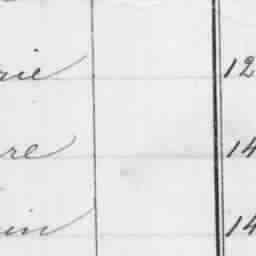 rie 12
re 14
in 14